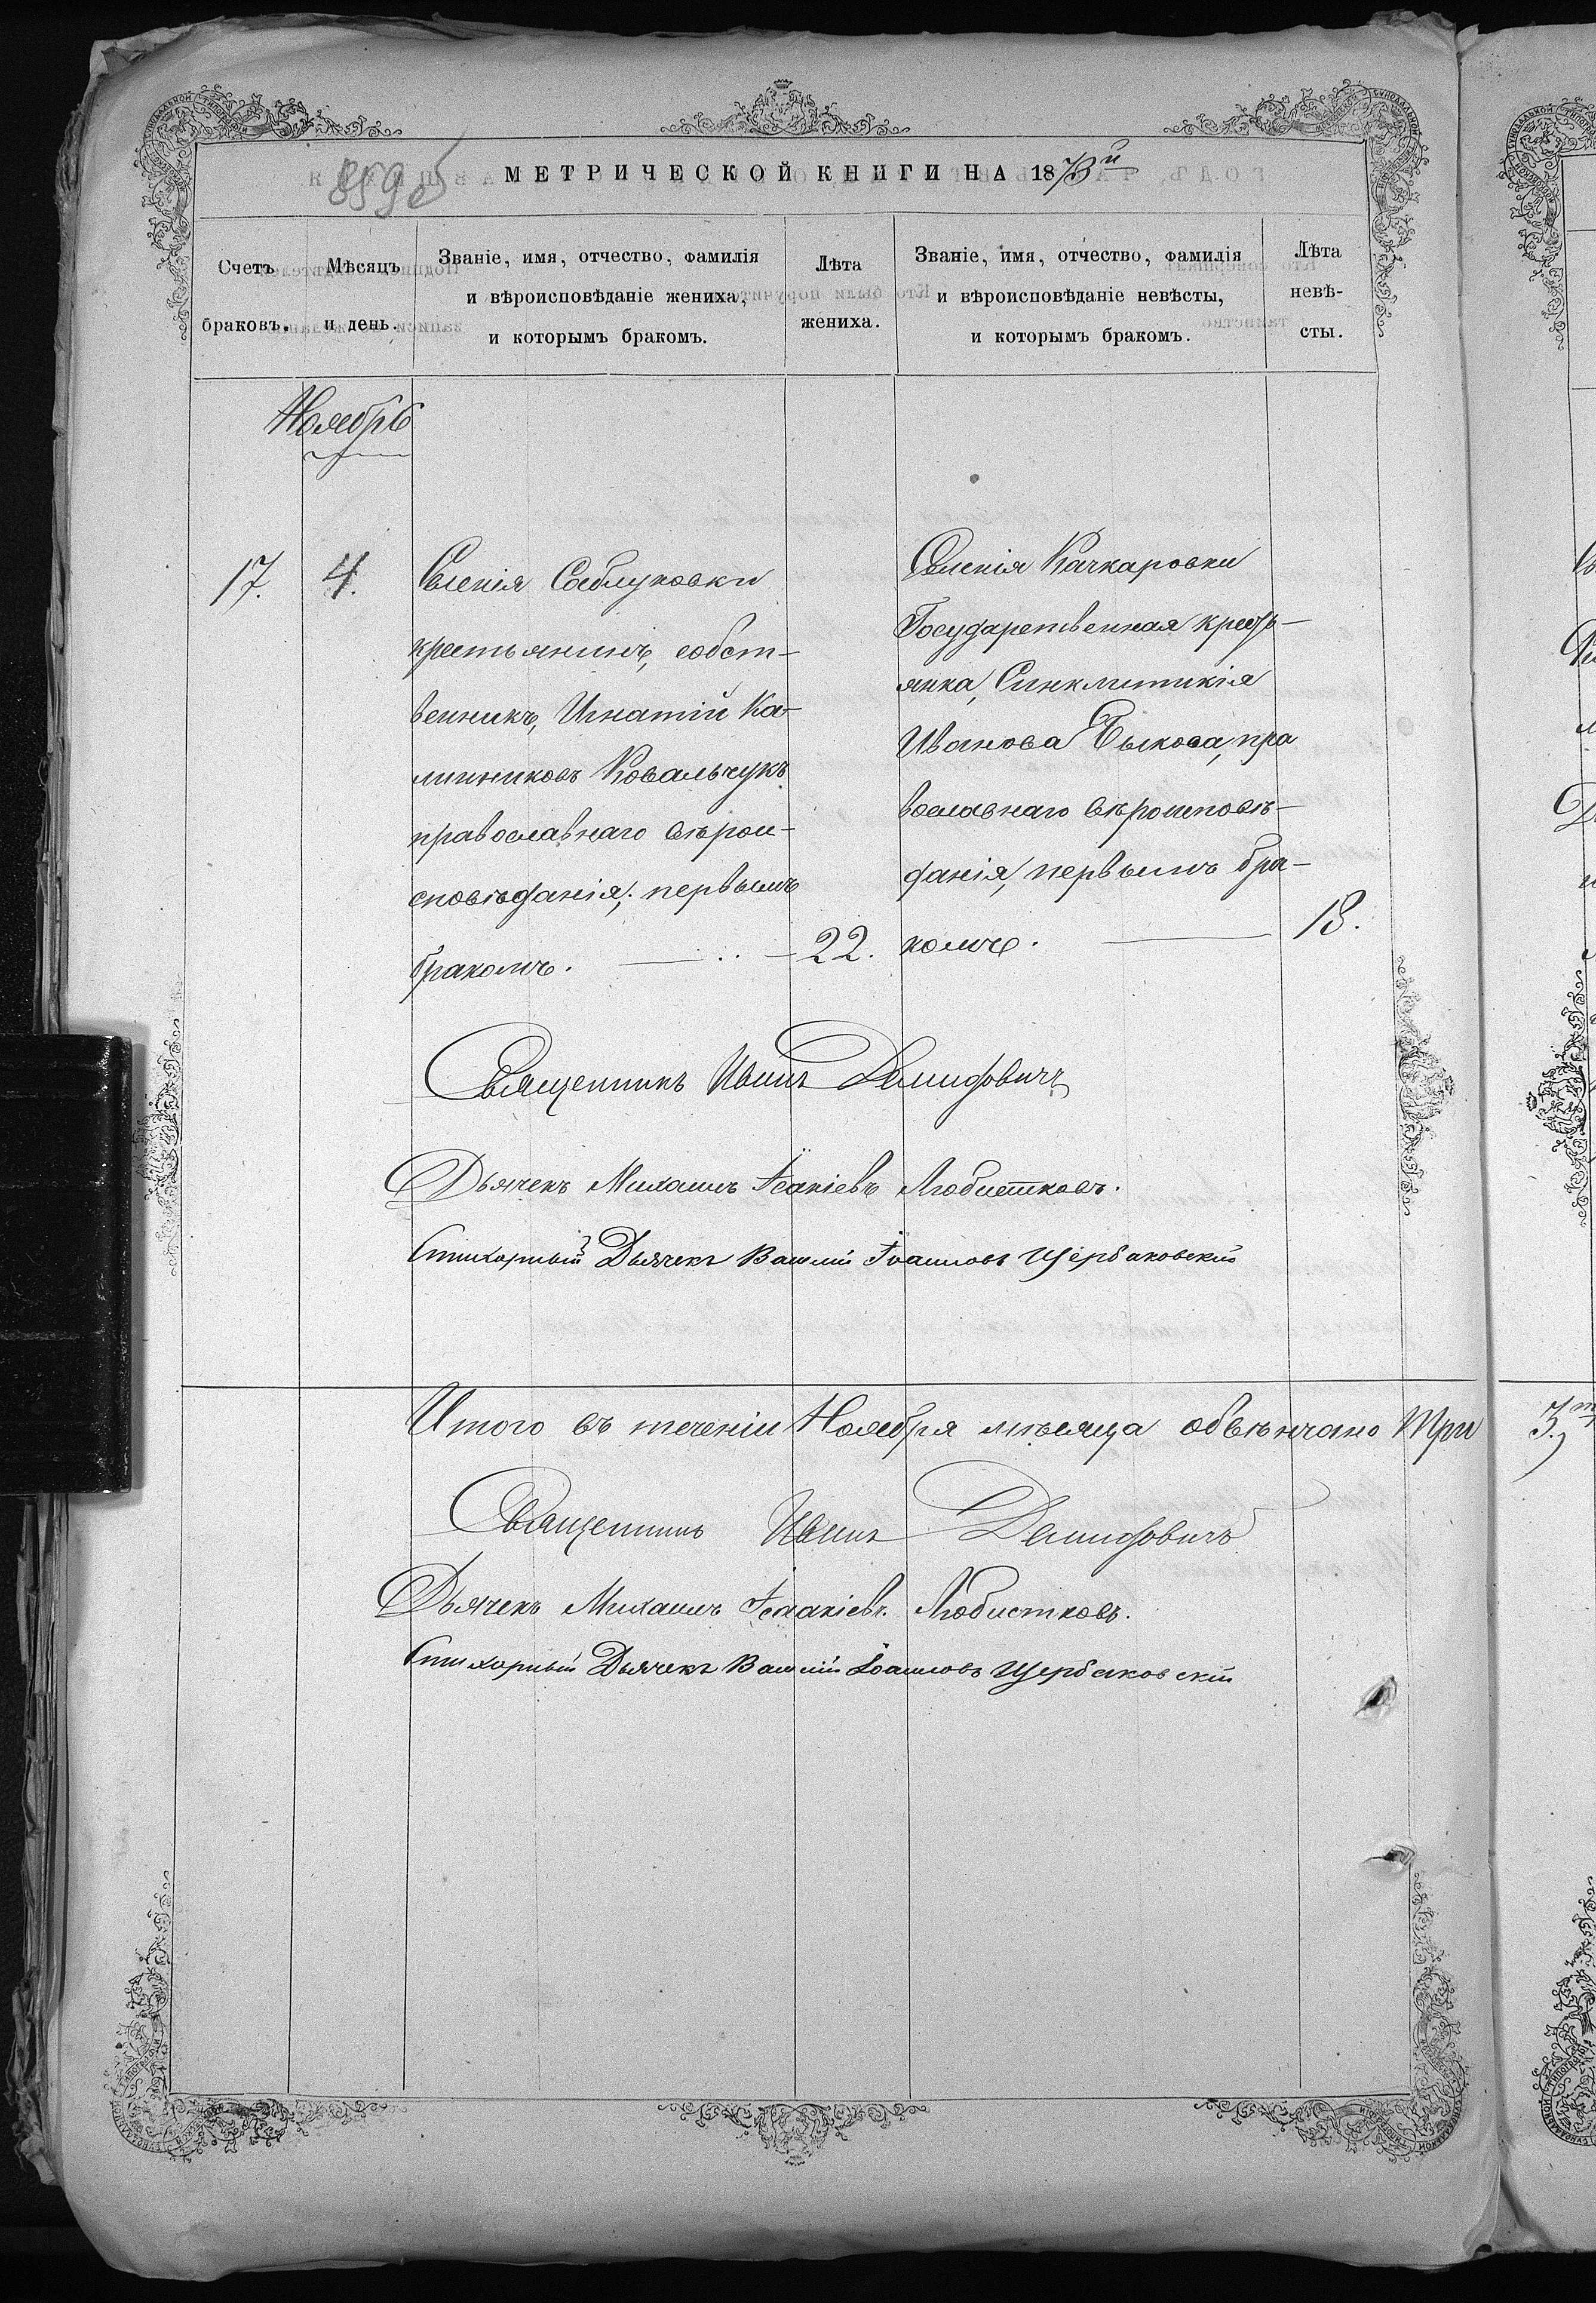 859об
МЕТРИЧЕСКОЙ КНИГИ НА 1873й
Счетъ браковъ.
Мѣсяцъ и день.
Званіе, имя, отчество, фамилія
и вѣроисповѣданіе жениха,
и которымъ бракомъ.
Лѣта
жениха.
Званіе, имя, отчество, фамилія
и вѣроисповѣданіе невѣсты,
и которымъ бракомъ.
Лѣта
невѣ-
сты.
Ноябрь
17.
4.
Селенія Саблуковки
крестьянинъ, собст-
венникъ, Игнатій Ка-
линниковъ Ковальчукъ
православнаго вѣрои-
сповѣданія, первымъ
бракомъ.
22.
Селенія Качкаровки
Государственная кресть-
янка, Синклитикія
Иванова Быкова, пра
вославнаго вѣроисповѣ-
данія, первымъ бра-
комъ.
18.
Священникъ Иванъ Демидовичъ
Дьячекъ Михаилъ Ісакіевъ Любистковъ.
Стихарный Дьячекъ Василій Іоанновъ Щербаковскій
Итого въ теченіи Ноября мѣсяца обвѣнчано три
Священникъ Иванъ Демидовичъ
Дьячекъ Михаилъ Ісаакіевъ. Любистковъ.
Стихарный Дьячекъ Василій Іоанновъ Щербаковскій